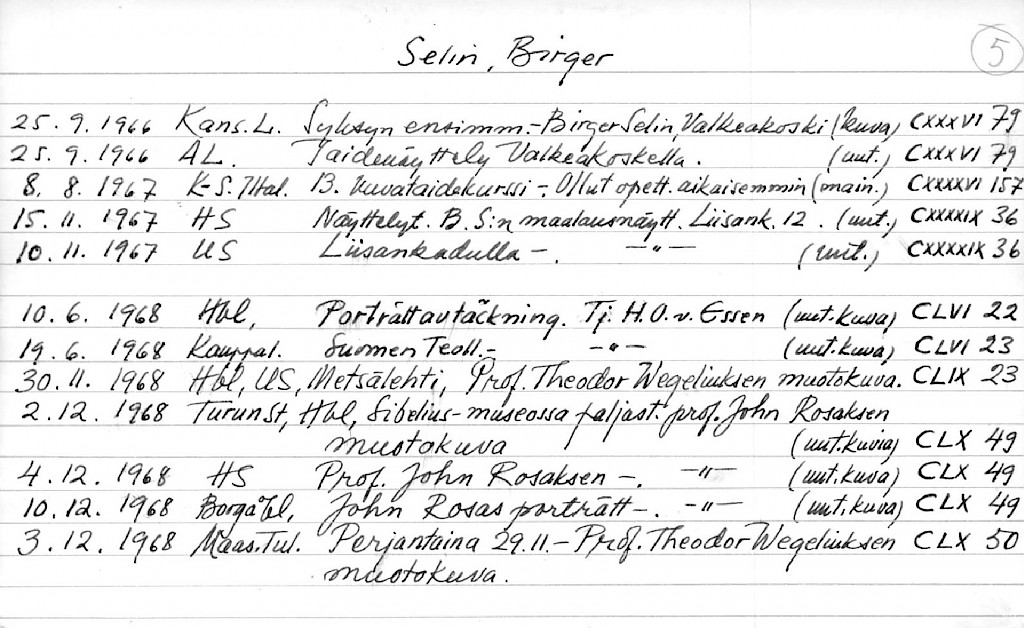 Selin, Birger
5
25. 9. 1966 Kans.L. Syksyn ensimm.- Birger Selin, Valkeakoski (kuva) CXXXVI 79
25. 9. 1966 AL. Taidenäyttely Valkeakoskella. (uut.) CXXXVI 79
8. 8. 1967 K-S. Ital. B. kuvataidekurssi -. Ollut opett. aikaisemmin (main.) CXXXXVI 157
15. 11. 1967 HS Näyttelyt. B. S:n maalausnäytt. Liisank. 12. (uut.) CXXXXIX 36
10. 11. 1967 US Liisankadulla -. -"- (uut.) CXXXXIX 36
10. 6. 1968 Hbl, Porträttavtäckning. Tj. H.O.v. Essen (uut.kuva) CLVI 22
19. 6. 1968 Kauppal. Suomen Teoll.- -"- (uut.kuva) CLVI 23
30. 11. 1968 Hbl, US, Metsälehti, Prof. Theodor Wegeliuksen muotokuva. CLIX 23
2. 12. 1968 TurunSt, Hbl, Sibelius-museossa paljast. prof. John Rosaksen
muotokuva (uut.kuvia) CLX 49
4. 12. 1968 HS Prof. John Rosaksen -. -"- (uut.kuva) CLX 49
10. 12. 1968 Borgåbl, John Rosas porträtt -. -"- (uut.kuva) CLX 49
3. 12. 1968 Maas.Tul. Perjantaina 29.11.- Prof. Theodor Wegeliuksen CLX 50
muotokuva.